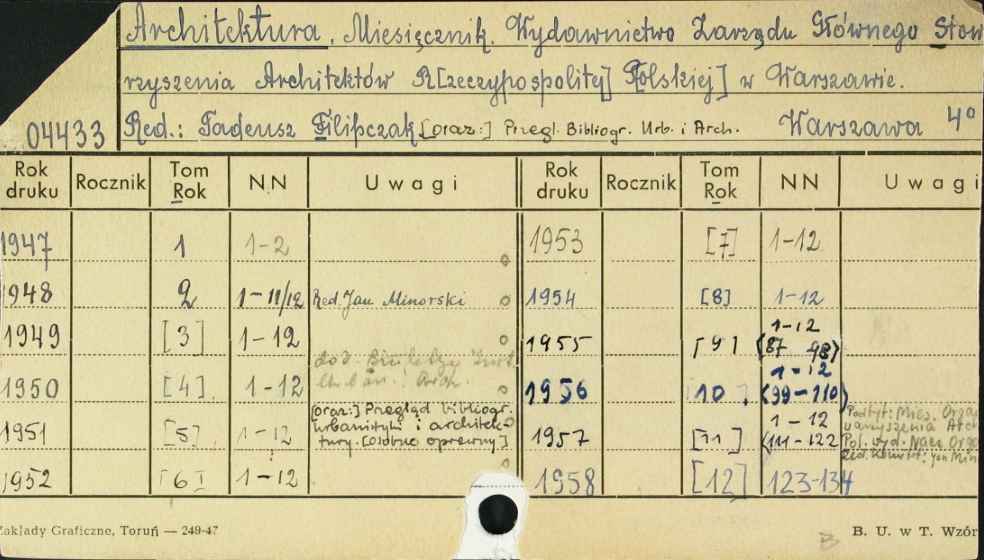 Architektura. Miesięcznik. Wydawnictwo Zarządu Głównego Stow
rzyszenia Architektów R[zeczypospolitej] Polskiej] w Warszawie.
04433 Red.: Tadeusz Filipczak [oraz:] Przegl. Bibliogr. Urb. i Arch. Warszawa 4°
Rok druku Rocznik Tom Rok NN Uwagi Rok druku Rocznik Tom Rok NN Uwagi
1947 1 1-2 1953 [7] 1-12
1948 2 1-11/12 Red. Jan Minorski 1954 [8] 1-12
1949 [3] 1-12 1955 [9] 1-12 (87-98)
1950 [4] 1-12 dod. 1956 10 1-12 (99-110)
1951 [5] 1-12 [oraz:] Przegląd bibliogr. urbanistyki i architektury. [osobno oprawny] 1957 [11] 1-12 (111-122
1952 [6] 1-12 1958 [12] 123-134
Zakłady Graficzne, Toruń — 249-47 B. U. w T. Wzór